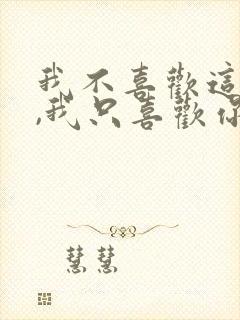 我不喜歡這
,我只喜歡你
慧慧